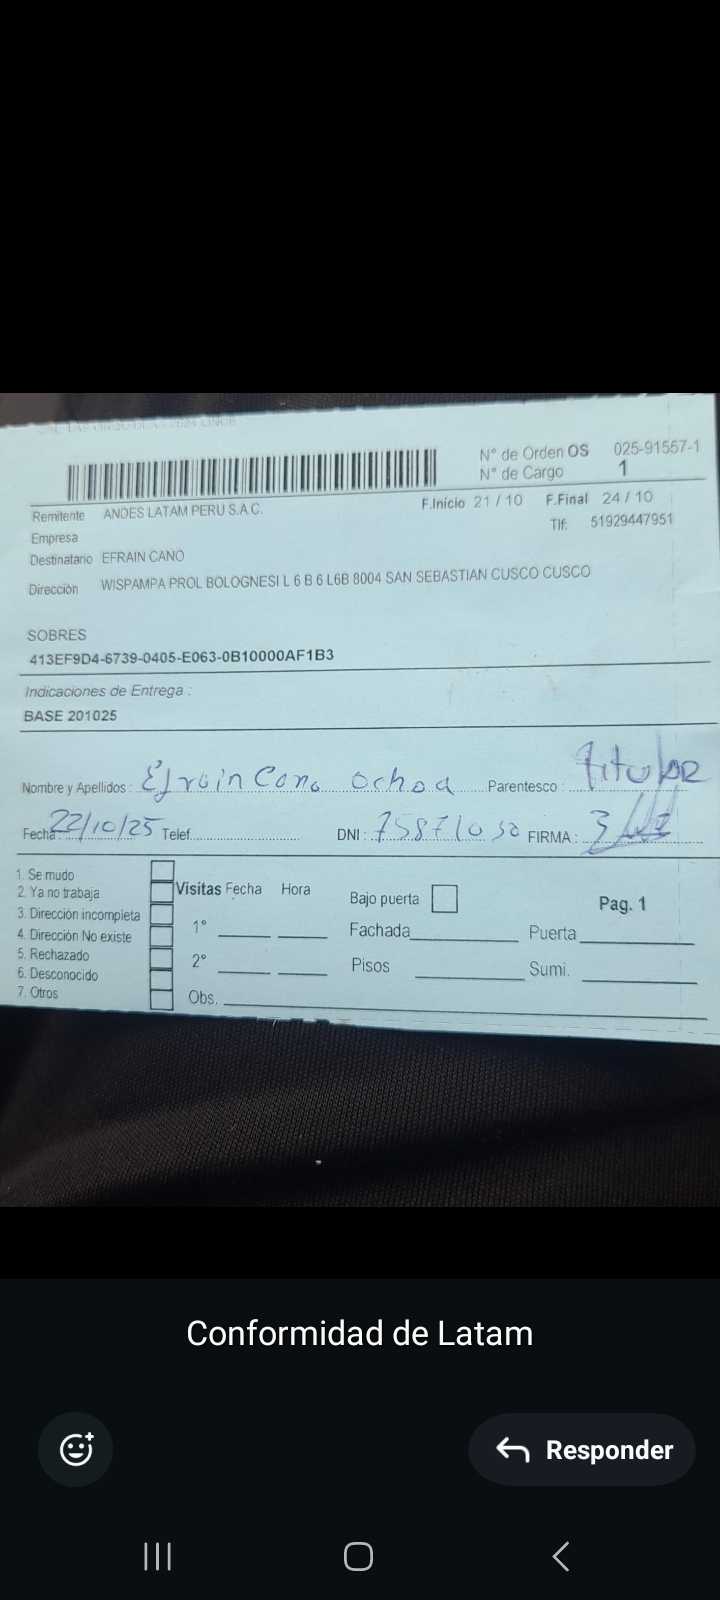 N° de Orden OS 025-91557-1
N° de Cargo 1
Remitente ANDES LATAM PERU S.A.C. F.Inicio 21 / 10 F.Final 24 / 10
Empresa Tlf: 51929447951
Destinatario EFRAIN CANO
Dirección WISPAMPA PROL BOLOGNESI L 6 B 6 L6B 8004 SAN SEBASTIAN CUSCO CUSCO
SOBRES
413EF9D4-6739-0405-E063-0B10000AF1B3
Indicaciones de Entrega :
BASE 201025
Nombre y Apellidos : Efrain Cano ochoa Parentesco : titular
Fecha : 22/10/25 Telef. DNI : 75871030 FIRMA :
1. Se mudo
2. Ya no trabaja
3. Dirección incompleta
4. Dirección No existe
5. Rechazado
6. Desconocido
7. Otros
Visitas Fecha Hora
1°
2°
Obs.
Bajo puerta
Fachada Puerta
Pisos Sumi.
Pag. 1
Conformidad de Latam
Responder